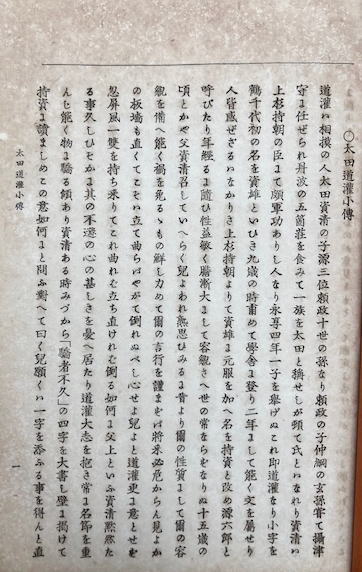 ○太田道灌小傳
道灌ハ相摸の人太田資清の子源三位頼政十世の孫なり頼政の子仲綱の玄孫甞て攝津
守に任ぜられ丹波の五箇荘を食みて一族を太田と稱せしが頓て氏とはなれり資清ハ
上杉持朝の臣にて頗軍功あり人なり永享四年一子を擧げぬこれ即道灌なり小字を
鶴千代初の名を資雄といひき九歳の時甫めて學舎に登り二年まして能く文を屬せり
人皆感ぜざるハなかりき上杉持朝よりて資雄に元服を加へ名を持資と改め源六郎と
呼びたり年經るに隨ひ性益敏く膽漸大まして容觀さへ世の常ならむなりぬ十五歳の
頃とかや父資清召していへらく兒よわれ熟思ひみるに昔より爾の性質まして爾の容
貌を備へ能く禍を免るゝもの鮮し力めて爾の言行を謹まむは將來必危からん見よか
の板塙も直くてこそハ立て曲らばやがて倒れぬべし心せよ兒よと道灌更に意とせむ
忽屏風一雙を持ち來りてこれ曲れむ立ち直けれむ倒る如何よ父上といふ資清黙然た
る事久しひそかに其の不遜の心の甚しきを憂へ居たり道灌大志を抱き常に名節を重
んじ能く物に驕る傾あり資清ある時みづから「驕者不久」の四字を大書し壁に掲げて
持資に讀ましめこの意如何よと問ふ對へて曰く兒願くハ一字を添ふる事を得んと直
太田道灌小傳
一